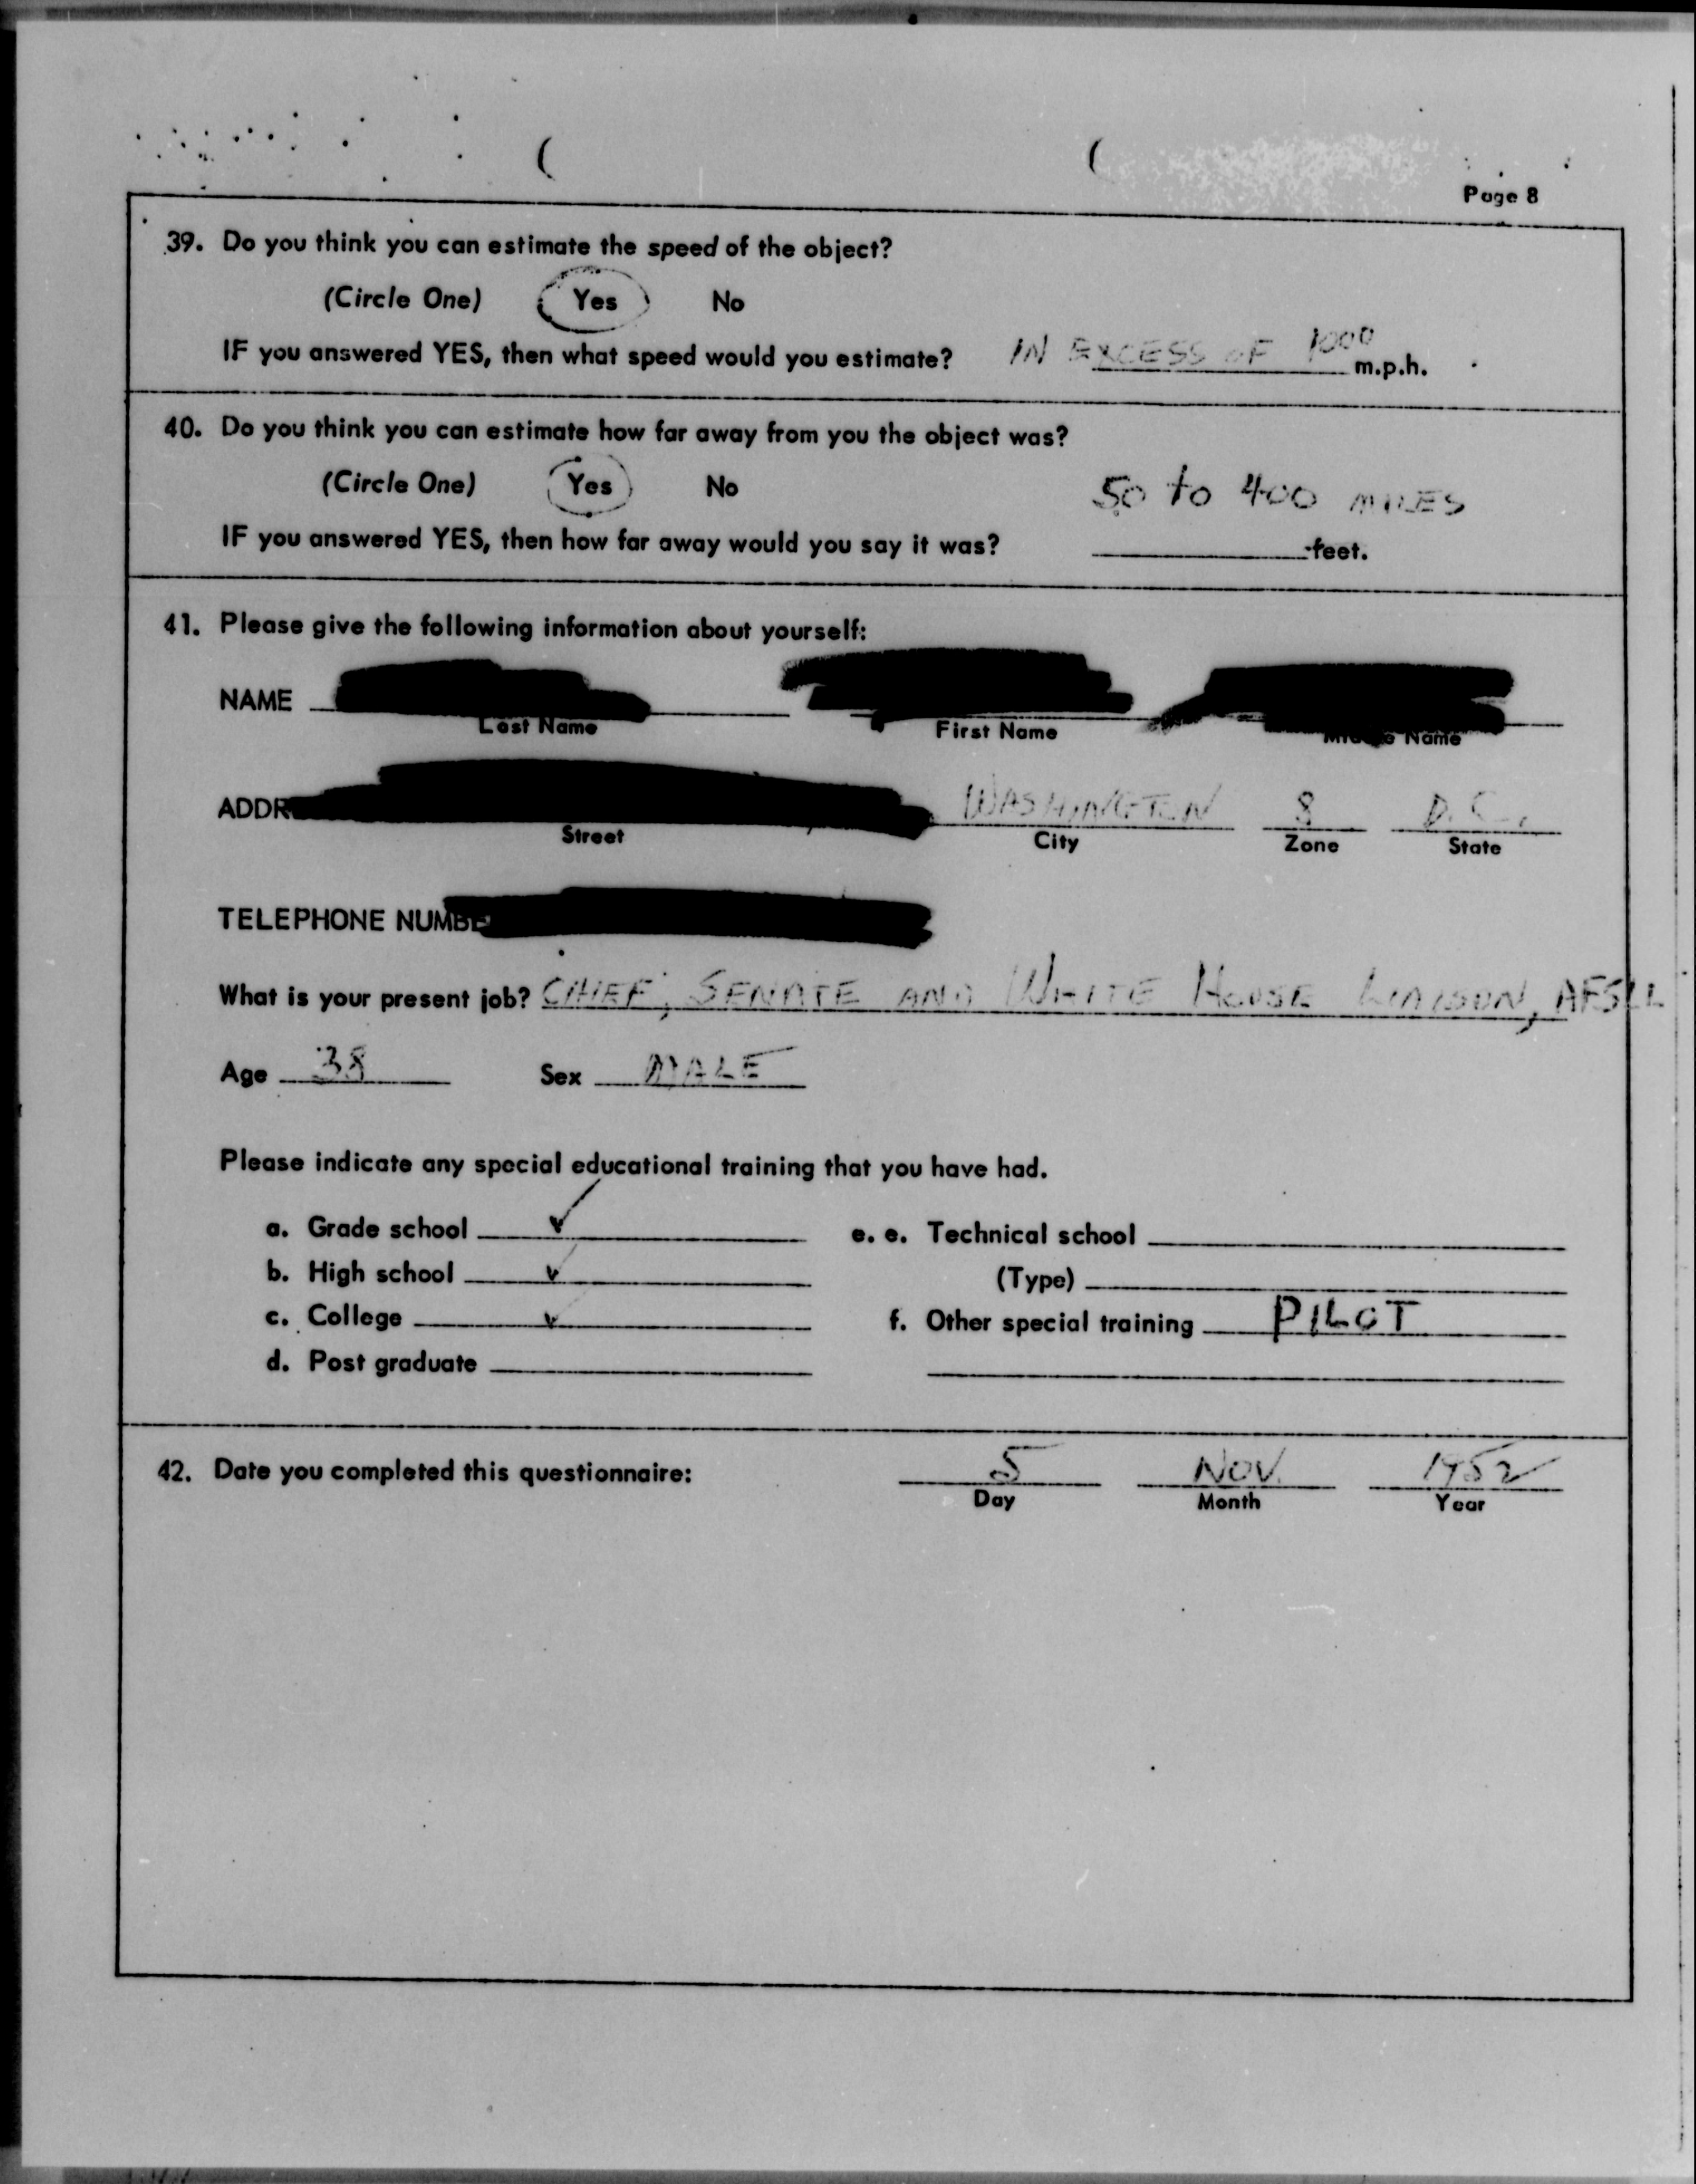 Page 8
39. Do you think you can estimate the speed of the object?
(Circle One) Yes No
IF you answered YES, then what speed would you estimate? IN EXCESS OF 1000 m.p.h.
40. Do you think you can estimate how far away from you the object was?
(Circle One) Yes No
50 to 400 MILES
IF you answered YES, then how far away would you say it was? feet.
41. Please give the following information about yourself:
NAME
Last Name First Name Middle Name
ADDR WASHINGTON 8 D.C.
Street City Zone State
TELEPHONE NUMBE
What is your present job? CHIEF, SENATE AND WHITE HOUSE LIAISON, AFSLL
Age 38 Sex MALE
Please indicate any special educational training that you have had.
a. Grade school ✓ e. e. Technical school
b. High school ✓ (Type)
c. College ✓ f. Other special training PILOT
d. Post graduate
42. Date you completed this questionnaire: 5 NOV. 1952
Day Month Year